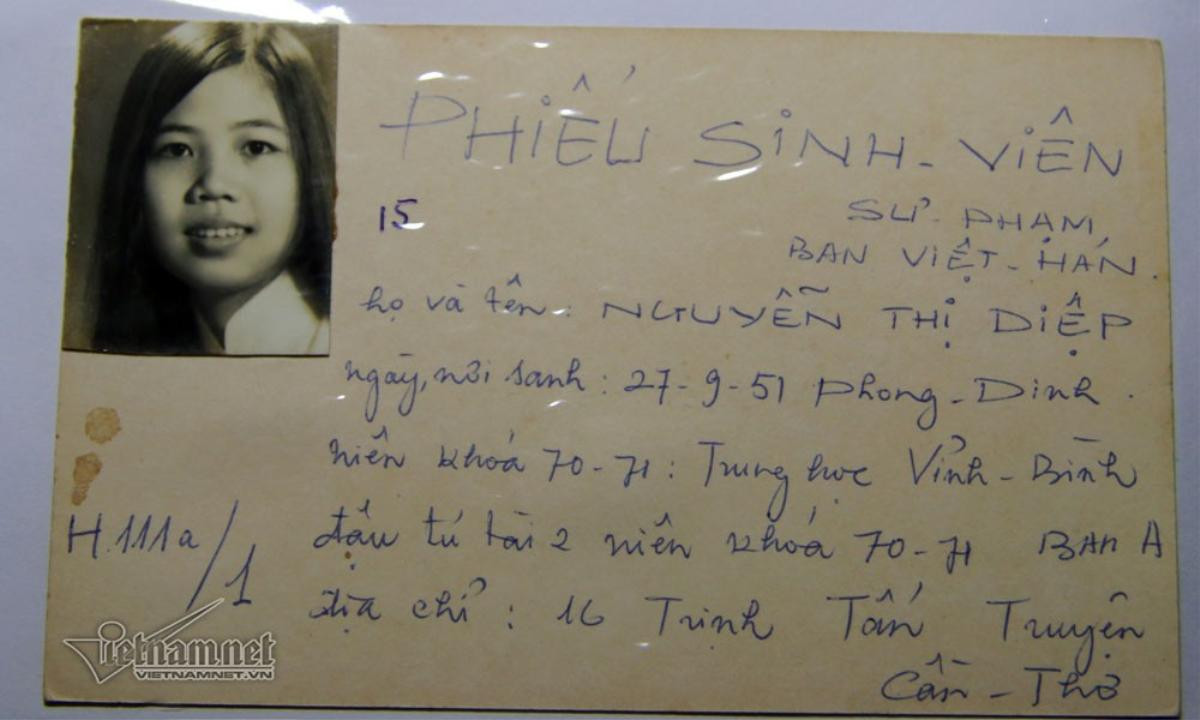 PHIẾU SINH-VIÊN
15
SƯ-PHẠM
BAN VIỆT-HÁN.
họ và tên: NGUYỄN THỊ DIỆP
ngày, nơi sanh: 27-9-51 Phong-Dinh.
niên khoá 70-71: Trung học Vĩnh-Bình
đậu tú tài 2 niên khoá 70-71 BAN A
địa chỉ: 16 Trịnh Tấn Truyện
Cần-Thơ
H.111a/1
Vietnamnet
VIETNAMNET.VN